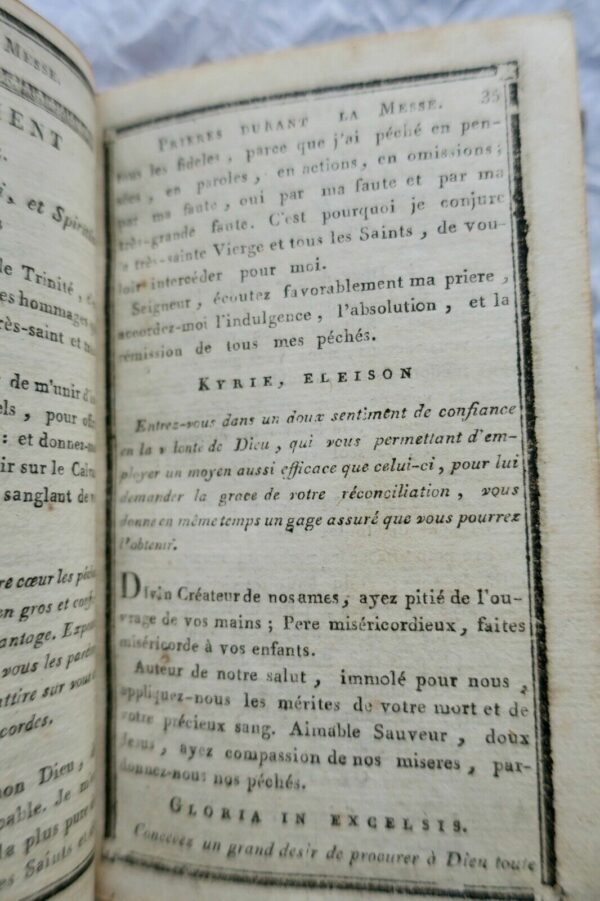 Messe.
MENT
i, et Spirit
le Trinité,
es hommages
rès-saint et
de m'unir d'
els, pour
: et donnez-
ir sur le
sanglant de
re cœur les
en gros et
antage.
vous les
attire sur
cordes.
mon Dieu,
pable. Je
la plus
es Saints et
Prieres durant la Messe. 35
tous les fideles, parce que j'ai péché en pen-
sées, en paroles, en actions, en omissions;
par ma faute, oui par ma faute et par ma
très-grande faute. C'est pourquoi je conjure
a très-sainte Vierge et tous les Saints, de vou-
loir intercéder pour moi.
Seigneur, écoutez favorablement ma priere,
accordez-moi l'indulgence, l'absolution, et la
rémission de tous mes péchés.
Kyrie, eleison
Entrez-vous dans un doux sentiment de confiance
en la v lonte de Dieu, qui vous permettant d'em-
ployer un moyen aussi efficace que celui-ci, pour lui
demander la grace de votre réconciliation, vous
donne en même temps un gage assuré que vous pourrez
l'obtenir.
Divin Créateur de nos ames, ayez pitié de l'ou-
vrage de vos mains; Pere miséricordieux, faites
miséricorde à vos enfants.
Auteur de notre salut, immolé pour nous,
appliquez-nous les mérites de votre mort et de
votre précieux sang. Aimable Sauveur, doux
Jesus, ayez compassion de nos miseres, par-
donnez-nous nos péchés.
Gloria in excelsis.
Concevez un grand desir de procurer à Dieu toute